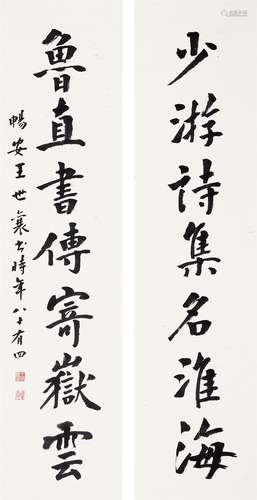 少游詩集名淮海
魯直書傳寄嶽雲
暢安王世襄書時年八十有四